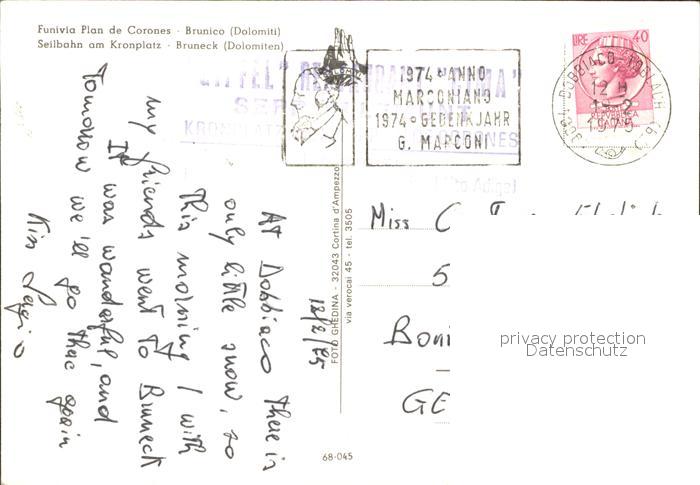 Funivia Plan de Corones - Brunico (Dolomiti)
Seilbahn am Kronplatz - Bruneck (Dolomiten)
1974 - ANNO
MARCONIANO
1974 - GEDENKJAHR
G. MARCONI
LIRE 40
39034 DOBBIACO - TOBLACH (BZ)
12 H
1975
KRONPLATZ
CORONES
12/2/75
At Dobbiaco there is
only little snow, so
this morning I with
my friends went to Bruneck
It was wonderful, and
Tomorrow we'll go there again
Kiss
FOTO GHEDINA - 32043 Cortina d'Ampezzo
via verocai 45 - tel. 3505
Miss C
5
Boni
GE
privacy protection
Datenschutz
68-045